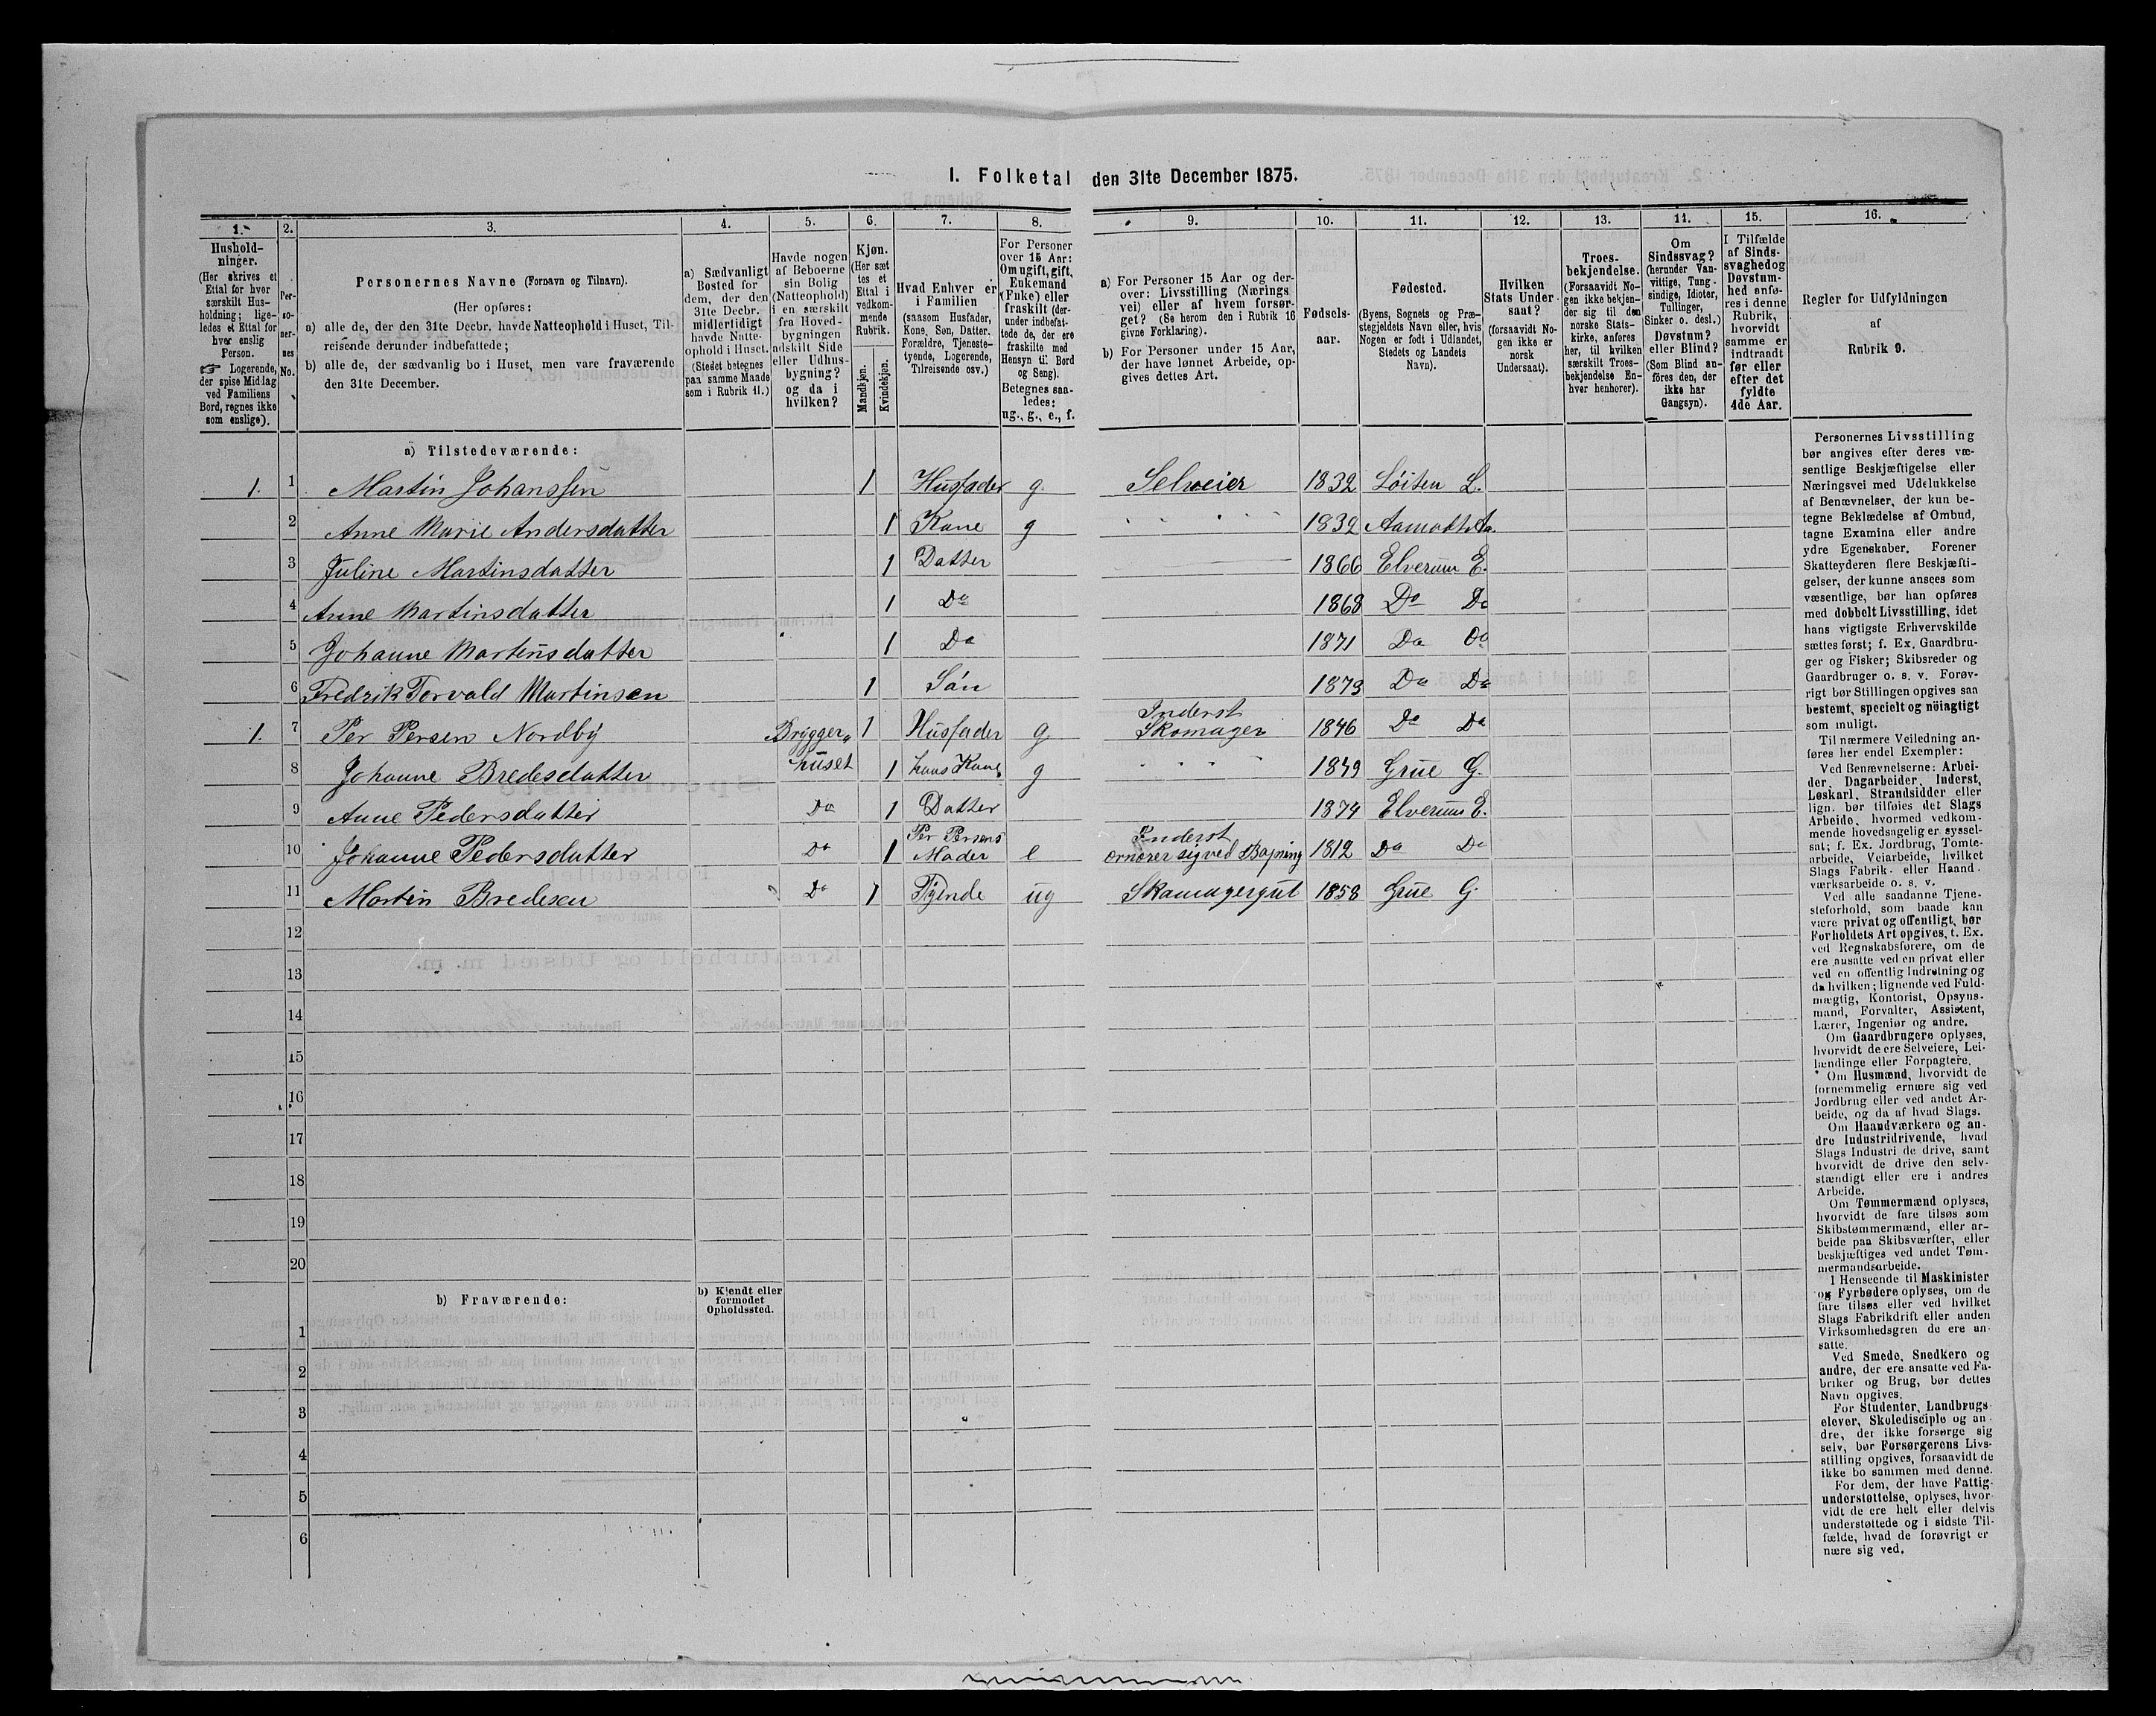 I. Folketal den 31te December 1875.
1.
Hushold-
ninger.
(Her skrives et
Ettal for hver
særskilt Hus-
holdning; lige-
ledes et Ettal for
hver enslig
Person.
☞ Logerende,
der spise Middag
ved Familiens
Bord, regnes ikke
som enslige).
2.
Per-
so-
ner-
nes
No.
3.
Personernes Navne (Fornavn og Tilnavn).
(Her opføres:
a) alle de, der den 31te Decbr. havde Natteophold i Huset, Til-
reisende derunder indbefattede;
b) alle de, der sædvanlig bo i Huset, men vare fraværende
den 31te December.
4.
a) Sædvanligt
Bosted for
dem, der den
31te Decbr.
midlertidigt
havde Natte-
ophold i Huset.
(Stedet betegnes
paa samme Maade
som i Rubrik 11.)
5.
Havde nogen
af Beboerne
sin Bolig
(Natteophold)
i en særskilt
fra Hoved-
bygningen
adskilt Side
eller Udhus-
bygning?
og da i
hvilken?
6.
Kjøn.
(Her sæt
tes et
Ettal i
vedkom-
mende
Rubrik.
Mandkjøn.
Kvindekjøn.
7.
Hvad Enhver er
i Familien
(saasom Husfader,
Kone, Søn, Datter,
Forældre, Tjeneste-
tyende, Logerende,
Tilreisende osv.)
8.
For Personer
over 15 Aar:
Om ugift, gift,
Enkemand
(Enke) eller
fraskilt (der-
under indbefat-
tede de, der ere
fraskilte med
Hensyn til Bord
og Seng).
Betegnes saa-
ledes:
ug., g., e., f.
9.
a) For Personer 15 Aar og der-
over: Livsstilling (Nærings
vei) eller af hvem forsør-
get? (Se herom den i Rubrik 16
givne Forklaring).
b) For Personer under 15 Aar,
der have lønnet Arbeide, op-
gives dettes Art.
10.
Fødsels-
aar.
11.
Fødested.
(Byens, Sognets og Præ-
stegjeldets Navn eller, hvis
Nogen er født i Udlandet,
Stedets og Landets
Navn).
12.
Hvilken
Stats Under-
saat?
(forsaavidt No-
gen ikke er
norsk
Undersaat).
13.
Troes-
bekjendelse.
(Forsaavidt No-
gen ikke bekjen-
der sig til den
norske Stats-
kirke, anføres
her, til hvilken
særskilt Troes-
bekjendelse En-
hver henhører).
14.
Om
Sindssvag?
(herunder Van-
vittige, Tung-
sindige, Idioter,
Tullinger,
Sinker o. desl.)
Døvstum?
eller Blind?
(Som Blind an-
føres den, der
ikke har
Gangsyn).
15.
I Tilfælde
af Sinds-
svaghed og
Døvstum-
hed anfø-
res i denne
Rubrik,
hvorvidt
samme er
indtraadt
før eller
efter det
fyldte
4de Aar.
16.
Regler for Udfyldningen
af
Rubrik 9.
a) Tilstedeværende:
1. 1 Martin Johanssen 1 Husfader g. Selveier 1832 Løiten L.
2 Anne Marie Andersdatter 1 Kone g 1832 Aamodt Aa.
3 Juline Martinsdatter 1 Datter 1866 Elverum E.
4 Anne Martinsdatter 1 Do 1868 Do Do
5 Johanne Martinsdatter 1 Do 1871 Do Do
6 Fredrik Torvald Martinsen 1 Søn 1873 Do Do
1. 7 Per Persen Nordby Brygger„ 1 Husfader g Inderst
Skomager 1846 Do Do
8 Johanne Bredesdatter huset 1 hans Kone g 1849 Grue G.
9 Anne Pedersdatter Do 1 Datter 1874 Elverum E.
10 Johanne Pedersdatter Do 1 Per Persens
Moder e Inderst
ernærer sig ved 1812 Do Do
11 Martin Bredesen Do 1 Tyende ug Skomagergut 1858 Grue G.
12
13
14
15
16
17
18
19
20
b) Fraværende:
b) Kjendt eller
formodet
Opholdssted.
1
2
3
4
5
6
Personernes Livsstilling
bør angives efter deres væ-
sentlige Beskjæftigelse eller
Næringsvei med Udelukkelse
af Benævnelser, der kun be-
tegne Beklædelse af Ombud,
tagne Examina eller andre
ydre Egenskaber. Forener
Skatteyderen flere Beskjæfti-
gelser, der kunne ansees som
væsentlige, bør han opføres
med dobbelt Livsstilling, idet
hans vigtigste Erhvervskilde
sættes først; f. Ex. Gaardbru-
ger og Fisker; Skibsreder og
Gaardbruger o. s. v. Forøv-
rigt bør Stillingen opgives saa
bestemt, specielt og nöiagtigt
som muligt.
Til nærmere Veiledning an-
føres her endel Exempler:
Ved Benævnelserne: Arbei-
der, Dagarbeider, Inderst,
Løskarl, Strandsidder eller
lign. bør tilføies det Slags
Arbeide, hvormed vedkom-
mende hovedsagelig er syssel-
sat; f. Ex. Jordbrug, Tomte-
arbeide, Veiarbeide, hvilket
Slags Fabrik- eller Haand-
værksarbeide o. s. v.
Ved alle saadanne Tjene-
steforhold, som baade kan
være privat og offentligt, bør
Forholdets Art opgives, t. Ex.
ved Regnskabsførere, om de
ere ansatte ved en privat eller
ved en offentlig Indretning og
da hvilken; lignende ved Fuld-
mægtig, Kontorist, Opsyns-
mand, Forvalter, Assistent,
Lærer, Ingeniør og andre.
Om Gaardbrugere oplyses,
hvorvidt de ere Selveiere, Lei-
lændinge eller Forpagtere.
Om Husmænd, hvorvidt de
fornemmelig ernære sig ved
Jordbrug eller ved andet Ar-
beide, og da af hvad Slags.
Om Haandværkere og an-
dre Industridrivende, hvad
Slags Industri de drive, samt
hvorvidt de drive den selv-
stændigt eller ere i andres
Arbeide.
Om Tømmermænd oplyses,
hvorvidt de fare tilsøs som
Skibstømmermænd, eller ar-
beide paa Skibsværfter, eller
beskjæftiges ved andet Tøm-
mermandsarbeide.
I Henseende til Maskinister
og Fyrbødere oplyses, om de
fare tilsøs eller ved hvilket
Slags Fabrikdrift eller anden
Virksomhedsgren de ere an-
satte.
Ved Smede, Snedkere og
andre, der ere ansatte ved Fa-
briker og Brug, bør dettes
Navn opgives.
For Studenter, Landbrugs-
elever, Skoledisciple og an-
dre, der ikke forsørge sig
selv, bør Forsørgerens Livs-
stilling opgives, forsaavidt de
ikke bo sammen med denne.
For dem, der have Fattig-
understøttelse, oplyses, hvor-
vidt de ere helt eller delvis
understøttede og i sidste Til-
fælde, hvad de forøvrigt er
nære sig ved.